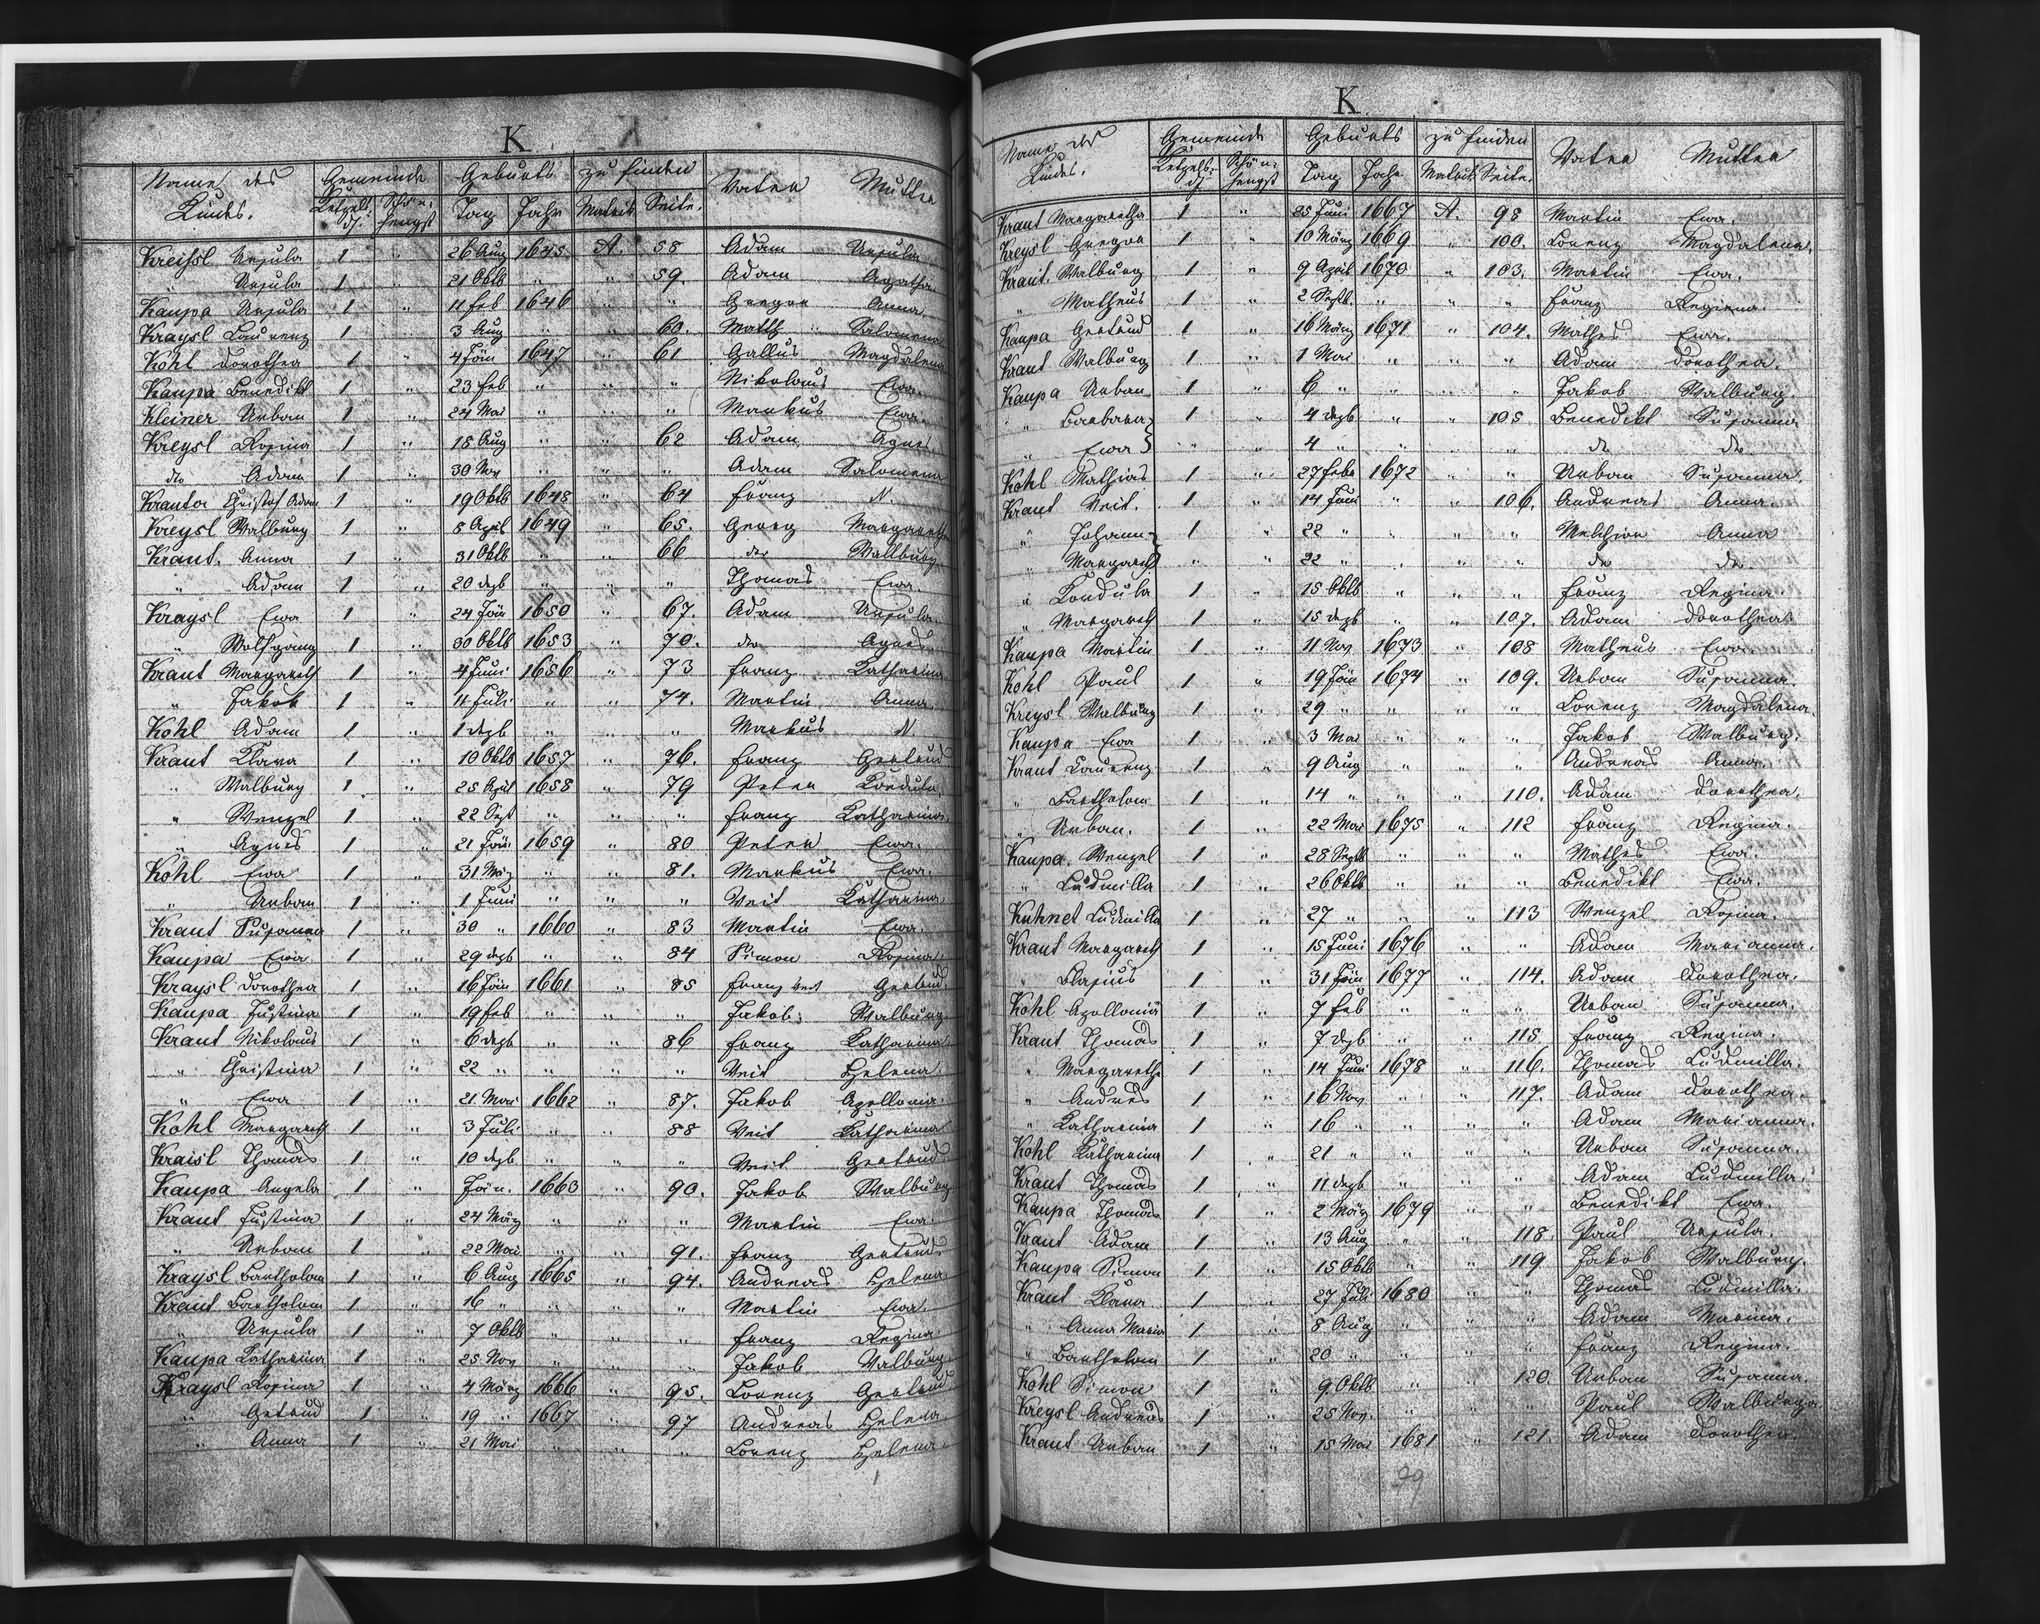 K.
Name des Kindes. Gemeinde Geburts zu finden Vater Mutter
Ketzelsdf. Schönhengst Tag Jahr Matrik Seite.
Kreissl Ursula 1 " 26 Aug 1645 A. 58 Adam Ursula
" Ursula 1 " 21 Oktb " " 59. Adam Agatha
Kaupa Ursula 1 " 11 Feb 1646 " " Gregor Anna
Kraysl Laurenz 1 " 3 Aug " " 60. Math Salomena
Kohl Dorothea 1 " 4 Jän 1647 " 61 Gallus Magdalena
Kaupa Benedikt 1 " 23 Feb " " " Nikolaus Ewa
Kleiner Urban 1 " 24 Mai " " " Markus Ewa
Kreysl Rosina 1 " 18 Aug " " 62 Adam Agnes
do Adam 1 " 30 Nov " " " Adam Salomena
Kranta Christof Adam 1 " 19 Oktb 1648 " 64 Franz N.
Kreysl Walburg 1 " 8 April 1649 " 65. Georg Margareth
Kraut. Anna 1 " 31 Oktb " " 66 der Wallburg
" Adam 1 " 20 Dezb " " " Thomas Ewa
Kraysl Ewa 1 " 24 Jän 1650 " 67. Adam Ursula.
" Wolfgang 1 " 30 Oktb 1653 " 70. der Agnes
Kraut Margareth 1 " 4 Juni 1656 " 73 Franz Katharina
" Jakob 1 " 11 Juli " " 74. Martin Anna
Kohl Adam 1 " 1 Dezb " " " Markus N.
Kraut Klara 1 " 10 Oktb 1657 " 76. Franz Gertrud
" Walburg 1 " 25 April 1658 " 79 Peter Kordula
" Wenzel 1 " 22 Sept " " " Franz Katharina
" Agnes 1 " 21 Jän. 1659 " 80 Peter Ewa.
Kohl Ewa 1 " 31 März " " 81. Markus Ewa.
" Urban 1 " 1 Juni " " " Veit Katharina
Kraut Susanna 1 " 30 " 1660 " 83 Martin Ewa.
Kaupa Ewa 1 " 29 Dezb " " 84 Simon Rosina
Kraysl Dorothea 1 " 16 Jän 1661 " 85 Franz Veit Gertrud
Kaupa Justina 1 " 19 Feb " " " Jakob Walburg
Kraut Nikolaus 1 " 6 Dezb " " 86 Franz Katharina
" Christina 1 " 22 " " " " Veit Helena
" Ewa 1 " 21 Mai 1662 " 87. Jakob Apollonia
Kohl Margareth 1 " 3 Juli " " 88 Veit Katharina
Kraisl Thomas 1 " 10 Dezb " " " Veit Gertrud
Kaupa Angela 1 " Jän. 1663 " 90. Jakob Walburg
Kraut Justina 1 " 24 März " " " Martin Ewa
" Urban 1 " 22 Mai " " 91. Franz Gertrud
Kraysl Bartholom 1 " 6 Aug 1665 " 94. Andreas Helena
Kraut Bartholom 1 " 16 " " " " Martin Ewa.
" Ursula 1 " 7 Oktb " " " Franz Regina
Kaupa Katharina 1 " 25 Nov " " " Jakob Walburg
Kraysl Rosina 1 " 4 März 1666 " 95. Lorenz Gertrud
" Getrud 1 " 19 " 1667 " 97 Andreas Helena
" Anna 1 " 21 Mai " " " Lorenz Helena
K.
Name des Kindes. Gemeinde Geburts zu finden Vater Mutter
Ketzelsdf. Schönhengst Tag Jahr Matrik. Seite.
Kraut Margaretha 1 " 25 Juni 1667 A. 98 Martin Ewa.
Kreysl Gregor 1 " 10 März 1669 " 100. Lorenz Magdalena
Kraut. Walburg 1 " 9 April 1670 " 103. Martin Ewa.
" Matheus 1 " 2 Septb. " " " Franz Regiena.
Kaupa Gertrud 1 " 16 März 1671 " 104. Mathes Ewa.
Kraut Walburg 1 " 1 Mai " " " Adam Dorothea.
Kaupa Urban 1 " 6 " " " " Jakob Walburg.
" Barbara } 1 " 4 Dezb " " 105 Benedikt Susanna
" Ewa } " " 4 " " " " do do
Kohl Mathias 1 " 27 Febr 1672 " " Urban Susanna.
Kraut Veit. 1 " 14 Juni " " 106. Andreas Anna.
" Johann } 1 " 22 " " " " Melchior Anna
" Margareth } " " 22 " " " " do do
" Kordula 1 " 15 Oktb " " " Franz Regina.
" Margareth 1 " 15 Dezb " " 107. Adam Dorothea.
Kaupa Martin 1 " 11 Nov 1673 " 108 Matheus Ewa.
Kohl Paul 1 " 19 Jän 1674 " 109. Urban Susanna.
Kreysl Walburg 1 " 29 " " " " Lorenz Magdalena.
Kaupa Ewa 1 " 3 Mai " " " Jakob Walburg.
Kraut Laurenz 1 " 9 Aug " " " Andreas Anna.
" Bartholom 1 " 14 " " " 110. Adam Dorothea.
" Urban. 1 " 22 Mai 1675 " 112 Franz Regina.
Kaupa. Wenzel 1 " 28 Septb " " " Mathes Ewa.
" Ludmilla 1 " 26 Oktb " " " Benedikt Ewa.
Kuhnet Ludmilla 1 " 27 " " " 113 Wenzel Rosina.
Kraut Margareth 1 " 15 Juni 1676 " " Adam Marianna.
" Blasius 1 " 31 Jän 1677 " 114. Adam Dorothea.
Kohl Apollonia 1 " 7 Feb " " " Urban Susanna.
Kraut Thomas 1 " 7 Dzb " " 115. Franz Regina.
" Margaretha 1 " 14 Juni 1678 " 116. Thomas Ludmilla.
" Andres 1 " 16 Nov " " 117. Adam Dorothea.
" Katharina 1 " 16 " " " " Adam Marianna.
Kohl Katharina 1 " 21 " " " " Urban Susanna.
Kraut Thomas 1 " 11 Dezb " " " Adam Ludmilla.
Kaupa Thomas 1 " 2 März 1679 " " Benedikt Ewa.
Kraut Adam 1 " 13 Aug " " 118. Paul Ursula.
Kaupa Simon 1 " 15 Oktb " " 119 Jakob Walburg.
Kraut Klara 1 " 27 Juli 1680 " " Thomas Ludmilla.
" Anna Maria 1 " 8 Aug " " " Adam Marina.
" Bartholom 1 " 20 " " " " Franz Regina.
Kohl Simon 1 " 9. Oktb " " 120. Urban Susanna.
Kreysl Andreas 1 " 25 Nov. " " " Paul Walburga
Kraut Urban 1 " 15 Mai 1681 " 121. Adam Dorothea.
29